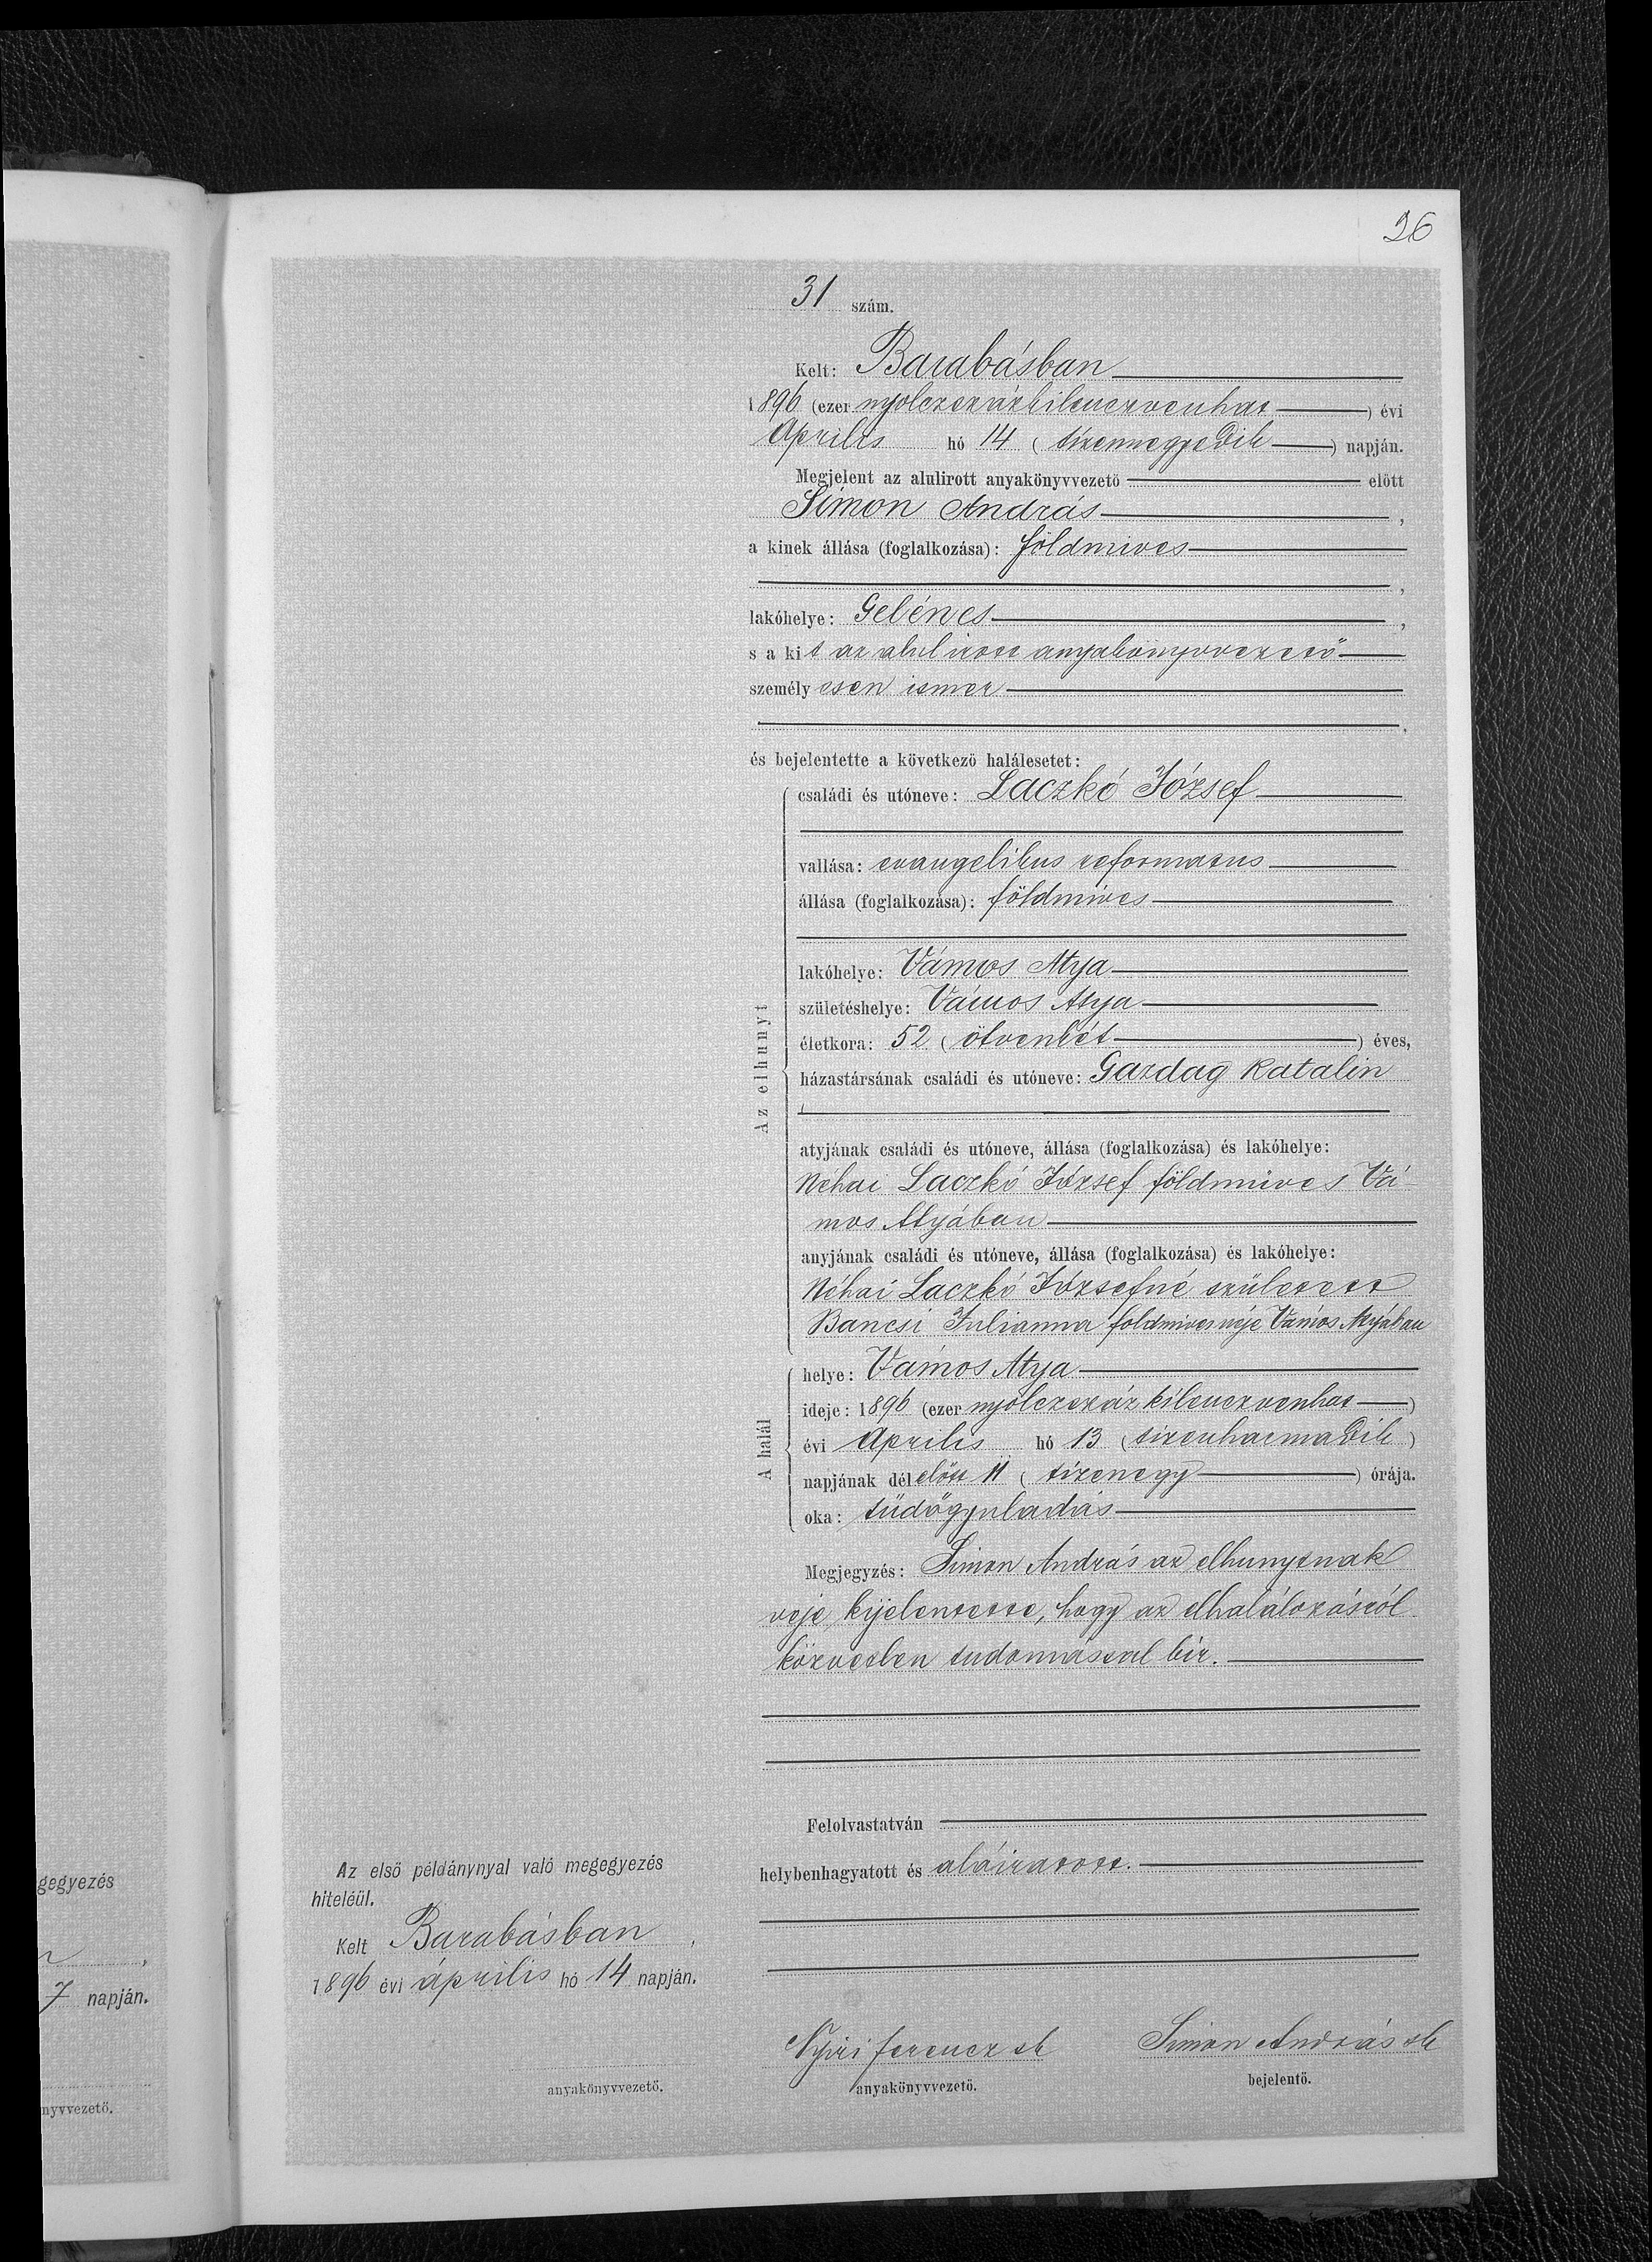 26
31 szám.
Kelt: Barabásban
1896 (ezer nyolczszázkilenczvenhat) évi
Április hó 14 (tizennegyedik) napján.
Megjelent az alulirott anyakönyvvezetö előtt
Simon András,
a kinek állása (foglalkozása): földmives
,
lakóhelye: Gelénes,
s a kit az alulirott anyakönyvvezető
személyesen ismer
,
és bejelentette a következö halálesetet:
Az elhunyt
családi és utóneve: Laczkó József
vallása: evangelikus reformatus
állása (foglalkozása): földmives
lakóhelye: Vámos Atya
születéshelye: Vámos Atya
életkora: 52 (ötvenkét) éves,
házastársának családi és utóneve: Gazdag Katalin
atyjának családi és utóneve, állása (foglalkozása) és lakóhelye:
Néhai Laczkó József földmives Vá-
mos Atyában
anyjának családi és utóneve, állása (foglalkozása) és lakóhelye:
Néhai Laczkó Józsefné született
Bancsi Julianna földmivesnéje Vámos Atyában
A halál
helye: Vámos Atya
ideje: 1896 (ezer nyolczszáz kilenczvenhat)
évi Április hó 13 (tizenharmadik)
napjának délelőtt 11 (tizenegy) órája.
oka: tüdőgyuladás
Megjegyzés: Simon András az elhunytnak
veje kijelentette, hogy az elhalálozásról
közvetlen tudomással bir.
Felolvastatván
helybenhagyatott és aláiratott.
Az elsö példánynyal való megegyezés
hiteléül.
Kelt Barabásban,
1896 évi április hó 14 napján.
anyakönyvvezetö.
Nyiri Ferencz sk
anyakönyvvezetö.
Simon András sk
bejelentö.
gegyezés
,
7 napján.
nyvvezetö.